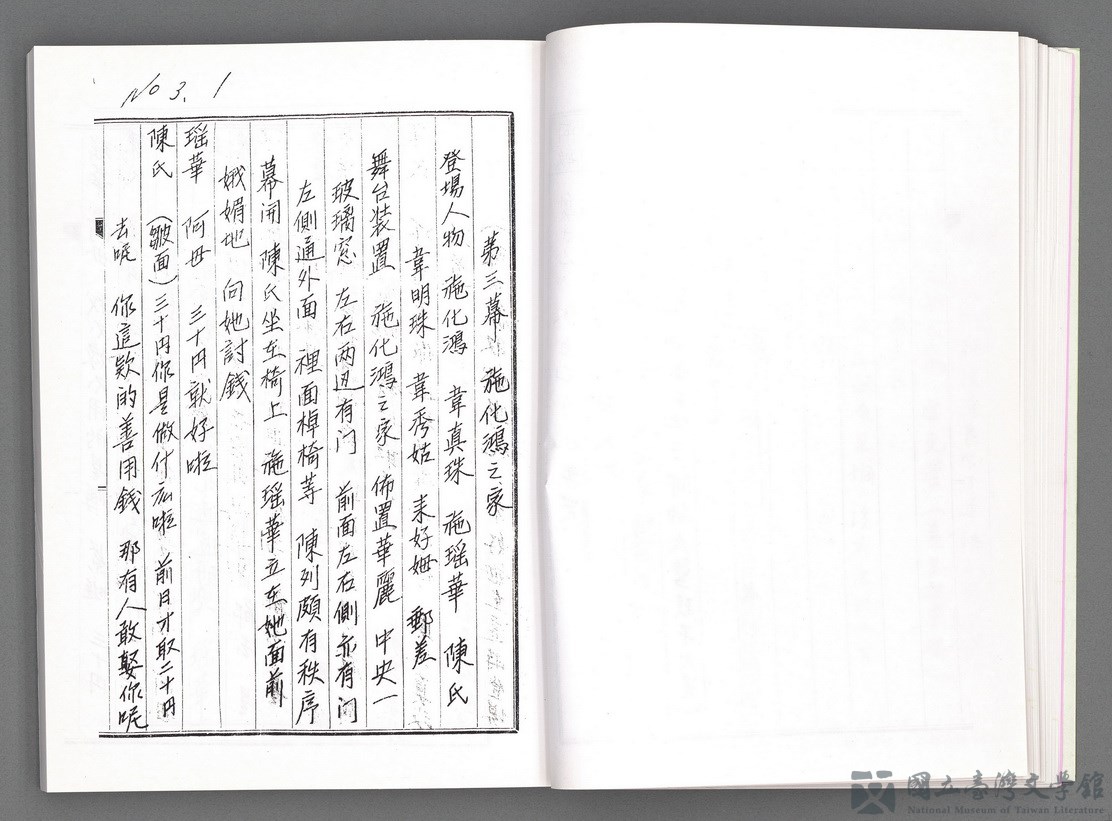 No 3. 1
第三幕 施化鴻之家
登場人物 施化鴻 韋真珠 施瑶華 陳氏
韋明珠 韋秀姑 来好姆 郵差
舞台装置 施化鴻之家 佈置華麗 中央一
玻璃窓 左右両辺有门 前面左右側亦有门
左側通外面 裡面棹椅等 陳列頗有秩序
幕開 陳氏坐在椅上 施瑶華立在她面前
娥媚地 向她討錢
瑶華 阿母 三十円就好啦
陳氏 (皺面)三十円你是做什広啦 前日才取二十円
去呢 你這欵的善用錢 那有人敢娶你呢
國立臺灣文學館
National Museum of Taiwan Literature